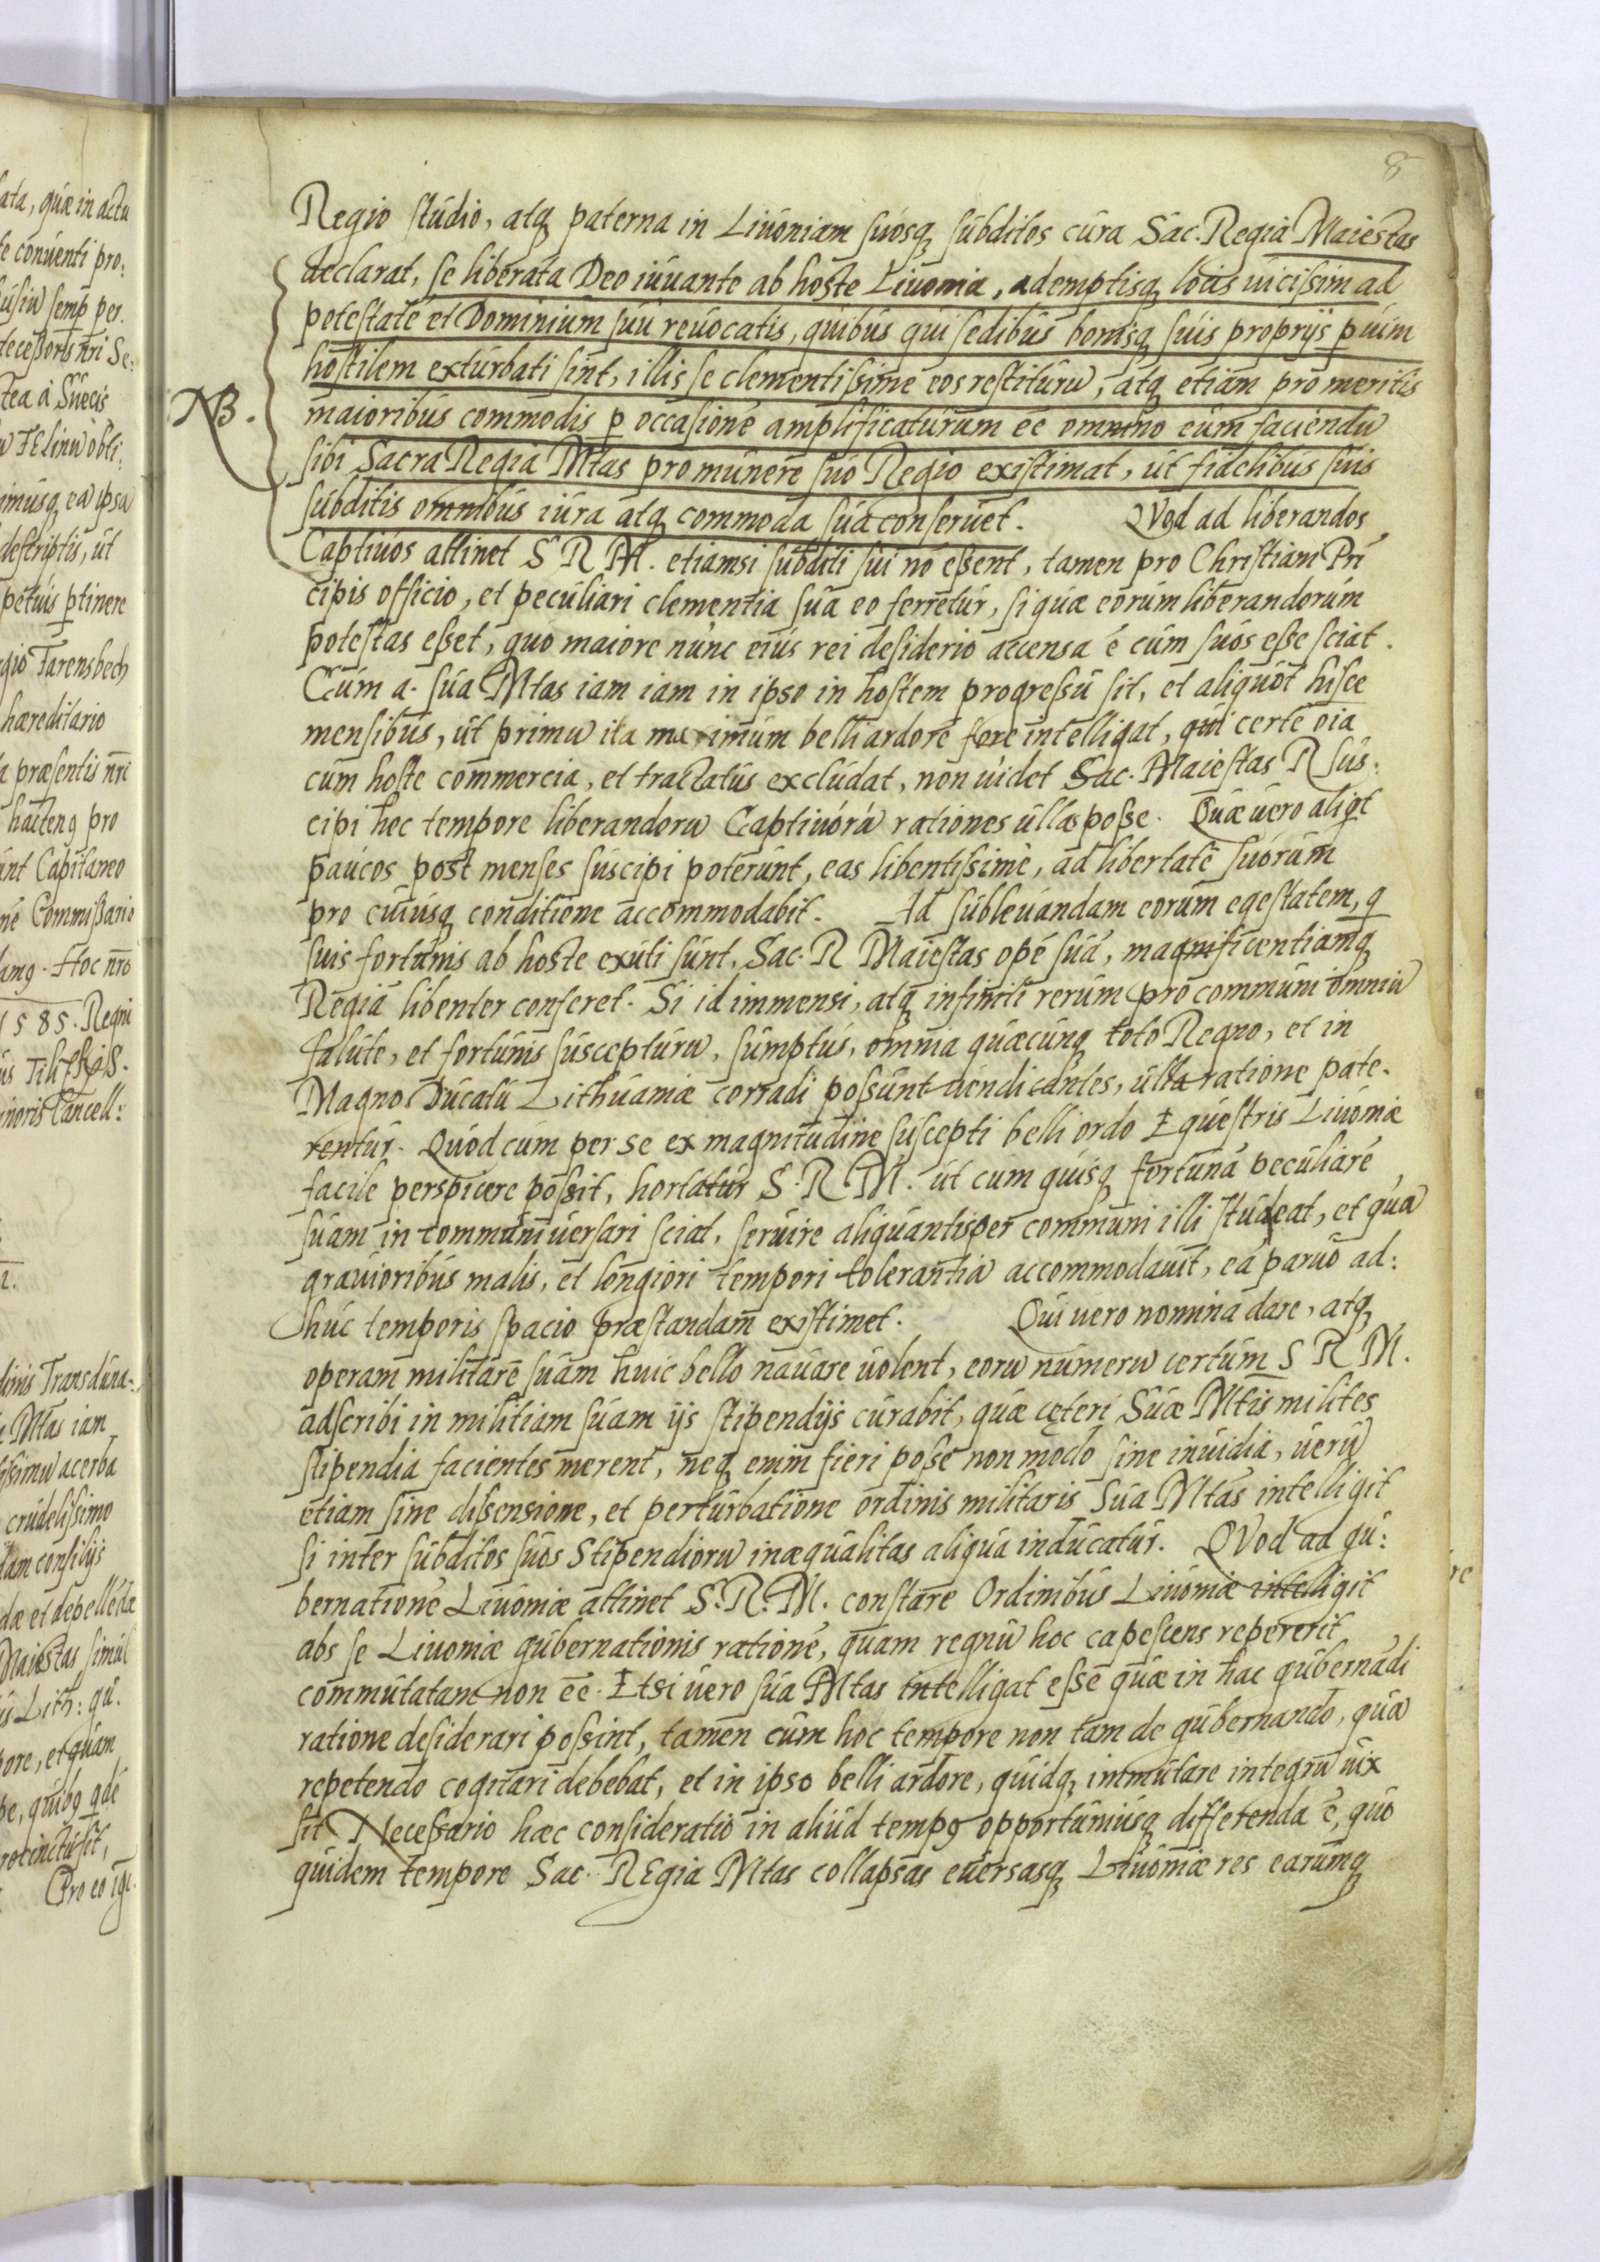 8
Regio studio, atq paterna in Livoniam suosq subditos cura Sac. Regia Maiestas
declarat, se liberata Deo iuvante ab hoste Livonia, ademptisq locis vicissim ad
potestatē et Dominium suū revocatis, quibus qui sedibus bonisq suis proprijs p vim
hostilem exturbati sint, illis se clementissime eos restiturū, atq etiam pro meritis
NB.
maioribus commodis p occasionē amplificaturum eē omnino eum faciendū
sibi Sacra Regia Mtas pro munere suo Regio existimat, ut fidelibus suis
subditis omnibus iura atq commoda sua conservet. QVod ad liberandos
Captivos attinet S R M. etiamsi subditi sui nō essent, tamen pro Christiani Prī
cipis officio, et peculiari clementia sua eo ferretur, si quæ eorum liberandorum
potestas esset, quo maiore nunc eius rei desiderio accensa ē cum suos esse sciat.
Cum a. sua Mtas iam iam in ipso in hostem progressu sit, et aliquot hisce
mensibus, ut primū ita maximum belli ardorē fore intelligat, qui certe oīa
cum hoste commercia, et tractatus excludat, non videt Sac. Maiestas R sus:
cipi hec tempore liberandorū Captivorū rationes ullas posse. Quæ vero aliqt
paucos post menses suscipi poterunt, eas libentissimè, ad libertatē suorum
pro cuiusq conditione accommodabit. Ad sublevandam eorum egestatem, q
suis fortunis ab hoste exuti sunt, Sac. R Maiestas opē suā, magnificentiamq
Regiā libenter conferet. Si id immensi, atq infiniti rerum pro communi omniū
salute, et fortunis suscepturū, sumptus, omnia quæcunq toto Regno, et in
Magno Ducatu Lithuaniæ corradi possunt vendicantes, ulla ratione pate-
rentur. Quod cum per se ex magnitudine suscepti belli ordo Equestris Livoniæ
facile perspicere possit, hortatur S. R M. ut cum quisq fortunā peculiarē
suam in communi versari sciat, servire aliquantisper communi illi studeat, et quā
gravioribus malis, et longiori tempori tolerantiā accommodavit, eā parvo ad:
huc temporis spacio præstandam existimet. Qui vero nomina dare, atq
operam militarē suam huic bello navare volent, eorū numerū certum S R M.
adscribi in militiam suam ijs stipendijs curabit, quæ cęteri Suæ Mtis milites
stipendia facientes merent, neq enim fieri posse non modo sine invidia, verū
etiam sine dissensione, et perturbatione ordinis militaris Sua Mtas intelligit
si inter subditos suos Stipendiorū inæqualitas aliqua inducatur. QVod ad gu:
bernationē Livoniæ attinet S. R. M. constare Ordinibus Livoniæ intelligit
abs se Livoniæ gubernationis rationē, quam regnū hoc capescens repererit
commutatam non eē. Etsi vero sua Mtas intelligat esse quæ in hac gubernādi
ratione desiderari possint, tamen cum hoc tempore non tam de gubernando, quā
repetendo cogitari debebat, et in ipso belli ardore, quidq immutare integrū vix
sit Necessario hæc consideratio in aliud tempq opportuniusq differenda ē, quo
quidem tempore Sac. REgia Mtas collapsas eversasq Livoniæ res earumq